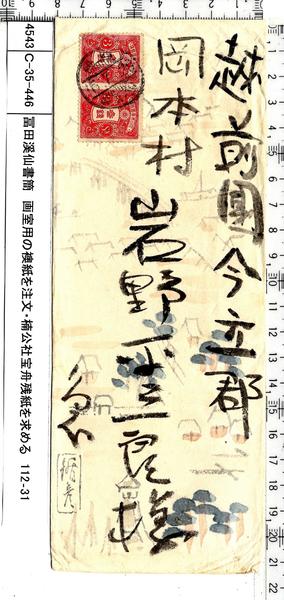 4543 C-35-446
冨田溪仙書簡　画室用の襖紙を注文・楠公社宝舟残紙を求める　112-31
越前國今立郡
岡本村
岩野平三良様